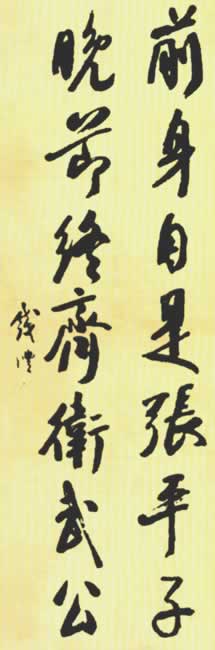 前身自是張平子
晚節終齊衛武公
錢灃